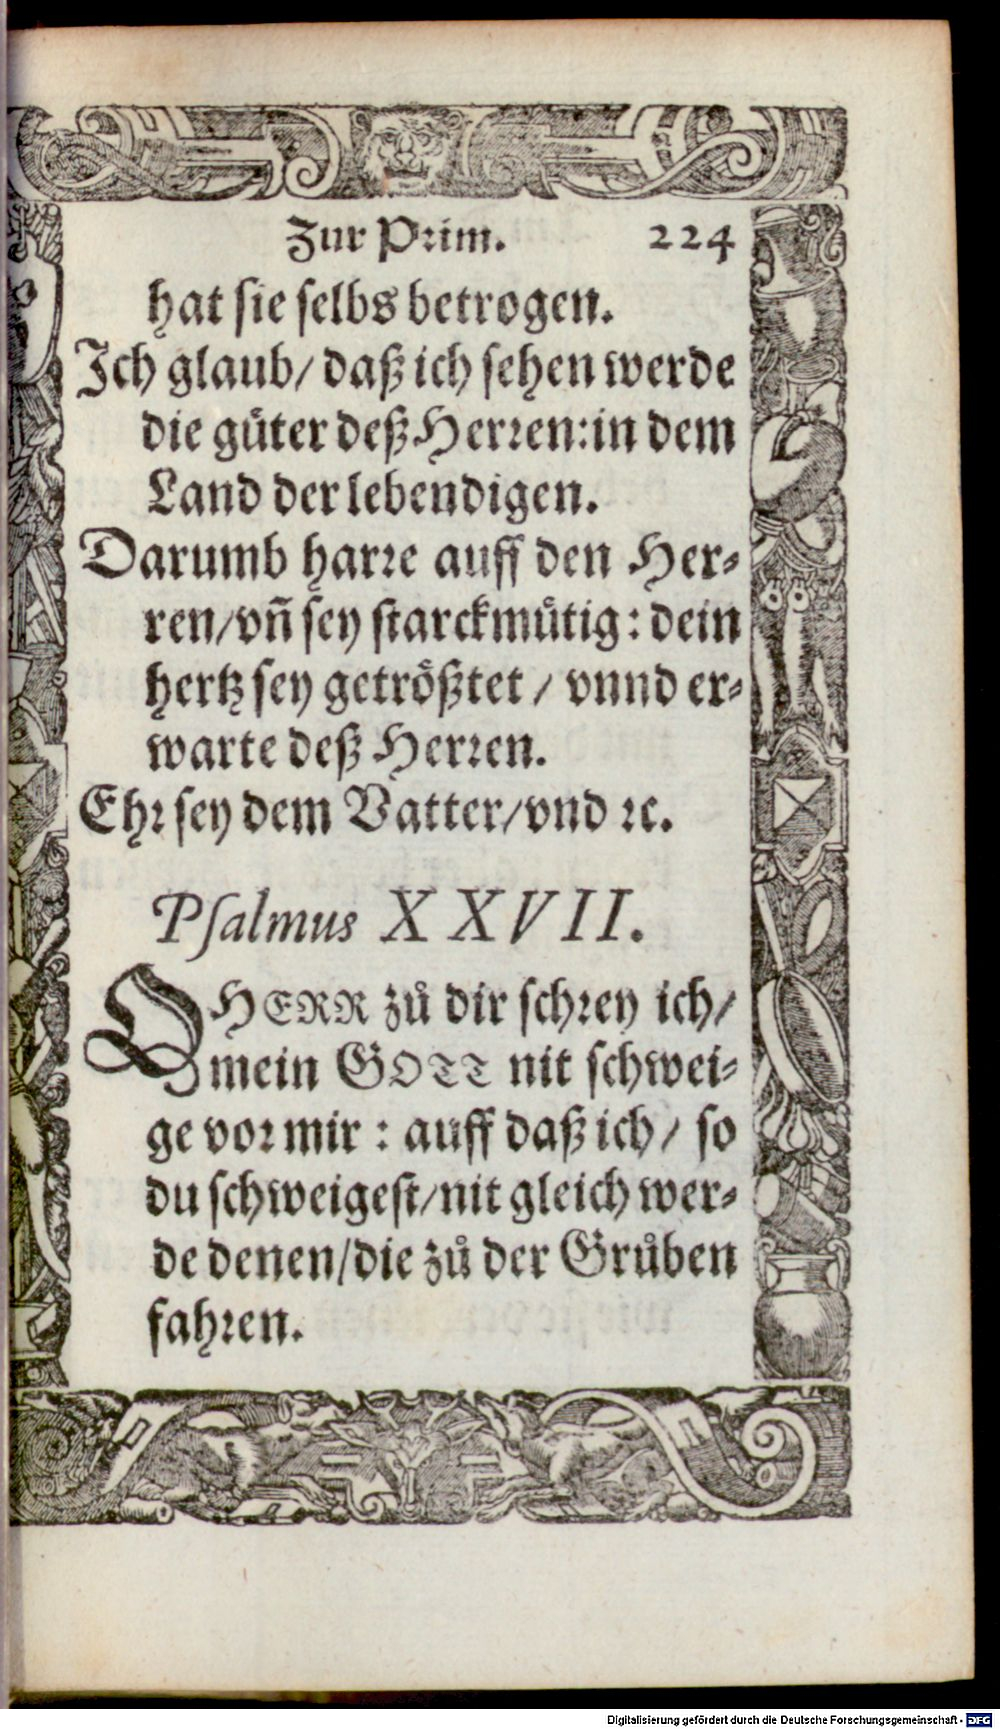 Zur Prim. 224
hat sie selbs betrogen.
Ich glaub/ daß ich sehen werde
die guͤter deß Herren: in dem
Land der lebendigen.
Darumb harre auff den Her-
ren/vñ sey starckmuͤtig: dein
hertz sey getrößtet / vnnd er-
warte deß Herren.
Ehr sey dem Vatter/vnd ꝛc.
Psalmus XXVII.
O HERR zů dir schrey ich/
mein GOTT nit schwei-
ge vor mir : auff daß ich / so
du schweigest/nit gleich wer-
de denen/die zů der Grůben
fahren.
Digitalisierung gefördert durch die Deutsche Forschungsgemeinschaft - DFG